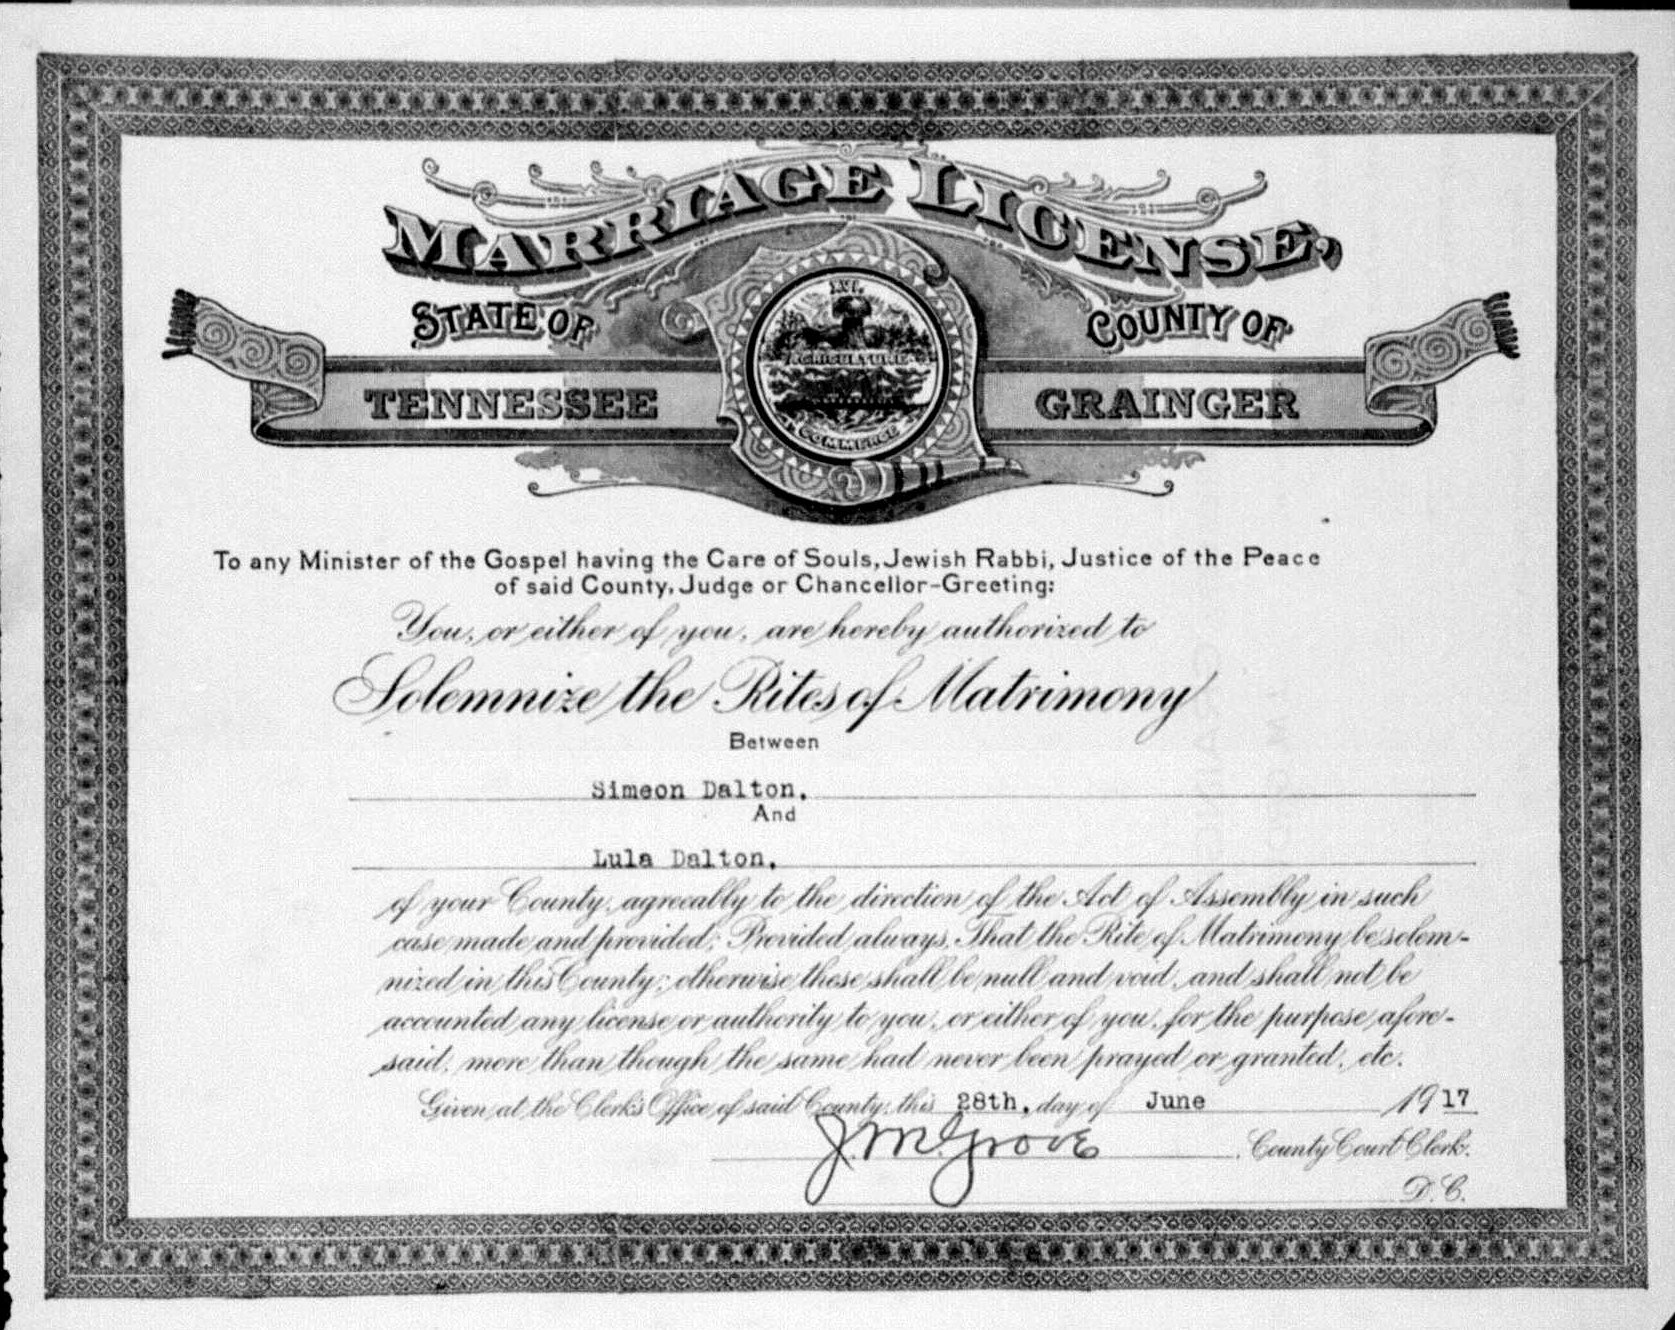 MARRIAGE LICENSE,
STATE OF
COUNTY OF
TENNESSEE
GRAINGER
XVI.
AGRICULTURE
COMMERCE
To any Minister of the Gospel having the Care of Souls, Jewish Rabbi, Justice of the Peace
of said County, Judge or Chancellor-Greeting:
You, or either of you, are hereby authorized to
Solemnize the Rites of Matrimony
Between
Simeon Dalton,
And
Lula Dalton,
of your County, agreeably to the direction of the Act of Assembly in such
case made and provided; Provided always, That the Rite of Matrimony be solem-
nized in this County; otherwise these shall be null and void, and shall not be
accounted any license or authority to you, or either of you, for the purpose afore-
said, more than though the same had never been prayed or granted, etc.
Given at the Clerk's Office of said County, this 28th, day of June 1917
J. M. Grove, County Court Clerk.
D. C.